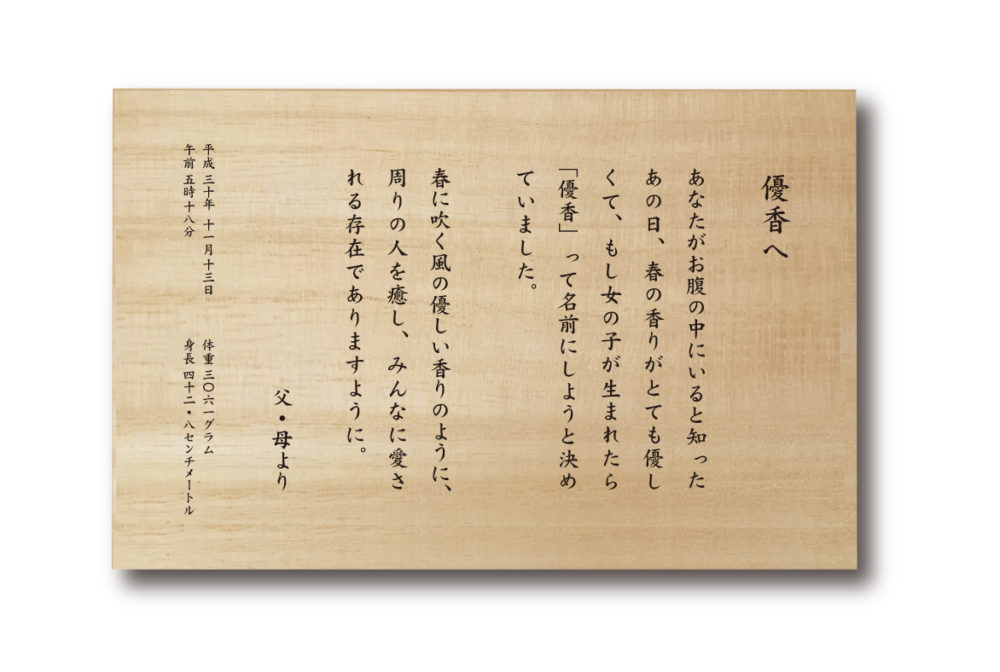 優香へ
あなたがお腹の中にいると知った
あの日、春の香りがとても優し
くて、もし女の子が生まれたら
「優香」って名前にしようと決め
ていました。
春に吹く風の優しい香りのように、
周りの人を癒し、みんなに愛さ
れる存在でありますように。
父・母より
平成 三十年 十一月 十三日
午前 五時 十八分
体重 三〇六一グラム
身長 四十二・八センチメートル